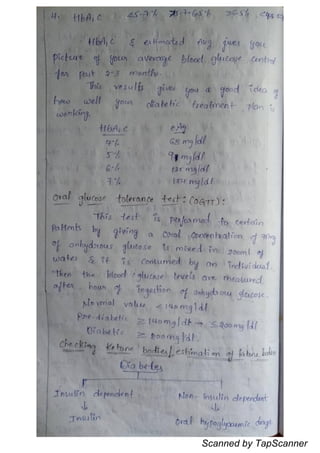 4. HbA₁C <5-7% >5.7-6.5% >6.5%
HbA₁C & estimated Avg gives you
picture of your average blood glucose control
for past 2-3 months.
This results gives you a good idea of
how well your diabetic treatment plan is
working.
HbA₁C eAg
4% 68 mg/dl
5% 97 mg/dl
6% 126 mg/dl
7% 154 mg/dl
Oral glucose tolerance test: (OGTT):
This test is performed in certain
patients by giving a oral concentration of
of anhydrous glucose is mixed in 200ml of
water & it is consumed by an individual.
Then the blood glucose levels are measured
after hour of ingestion of anhydrous glucose.
Normal value < 140 mg/dl
Pre-diabetic ≥ 140 mg/dl → ≤ 200 mg/dl
Diabetic ≥ 200 mg/dl
Checking Ketone bodies/estimation of ketone bodies
Diabetes
Insulin dependent Non-Insulin dependent
Insulin Oral hypoglycaemic drugs
Scanned by TapScanner